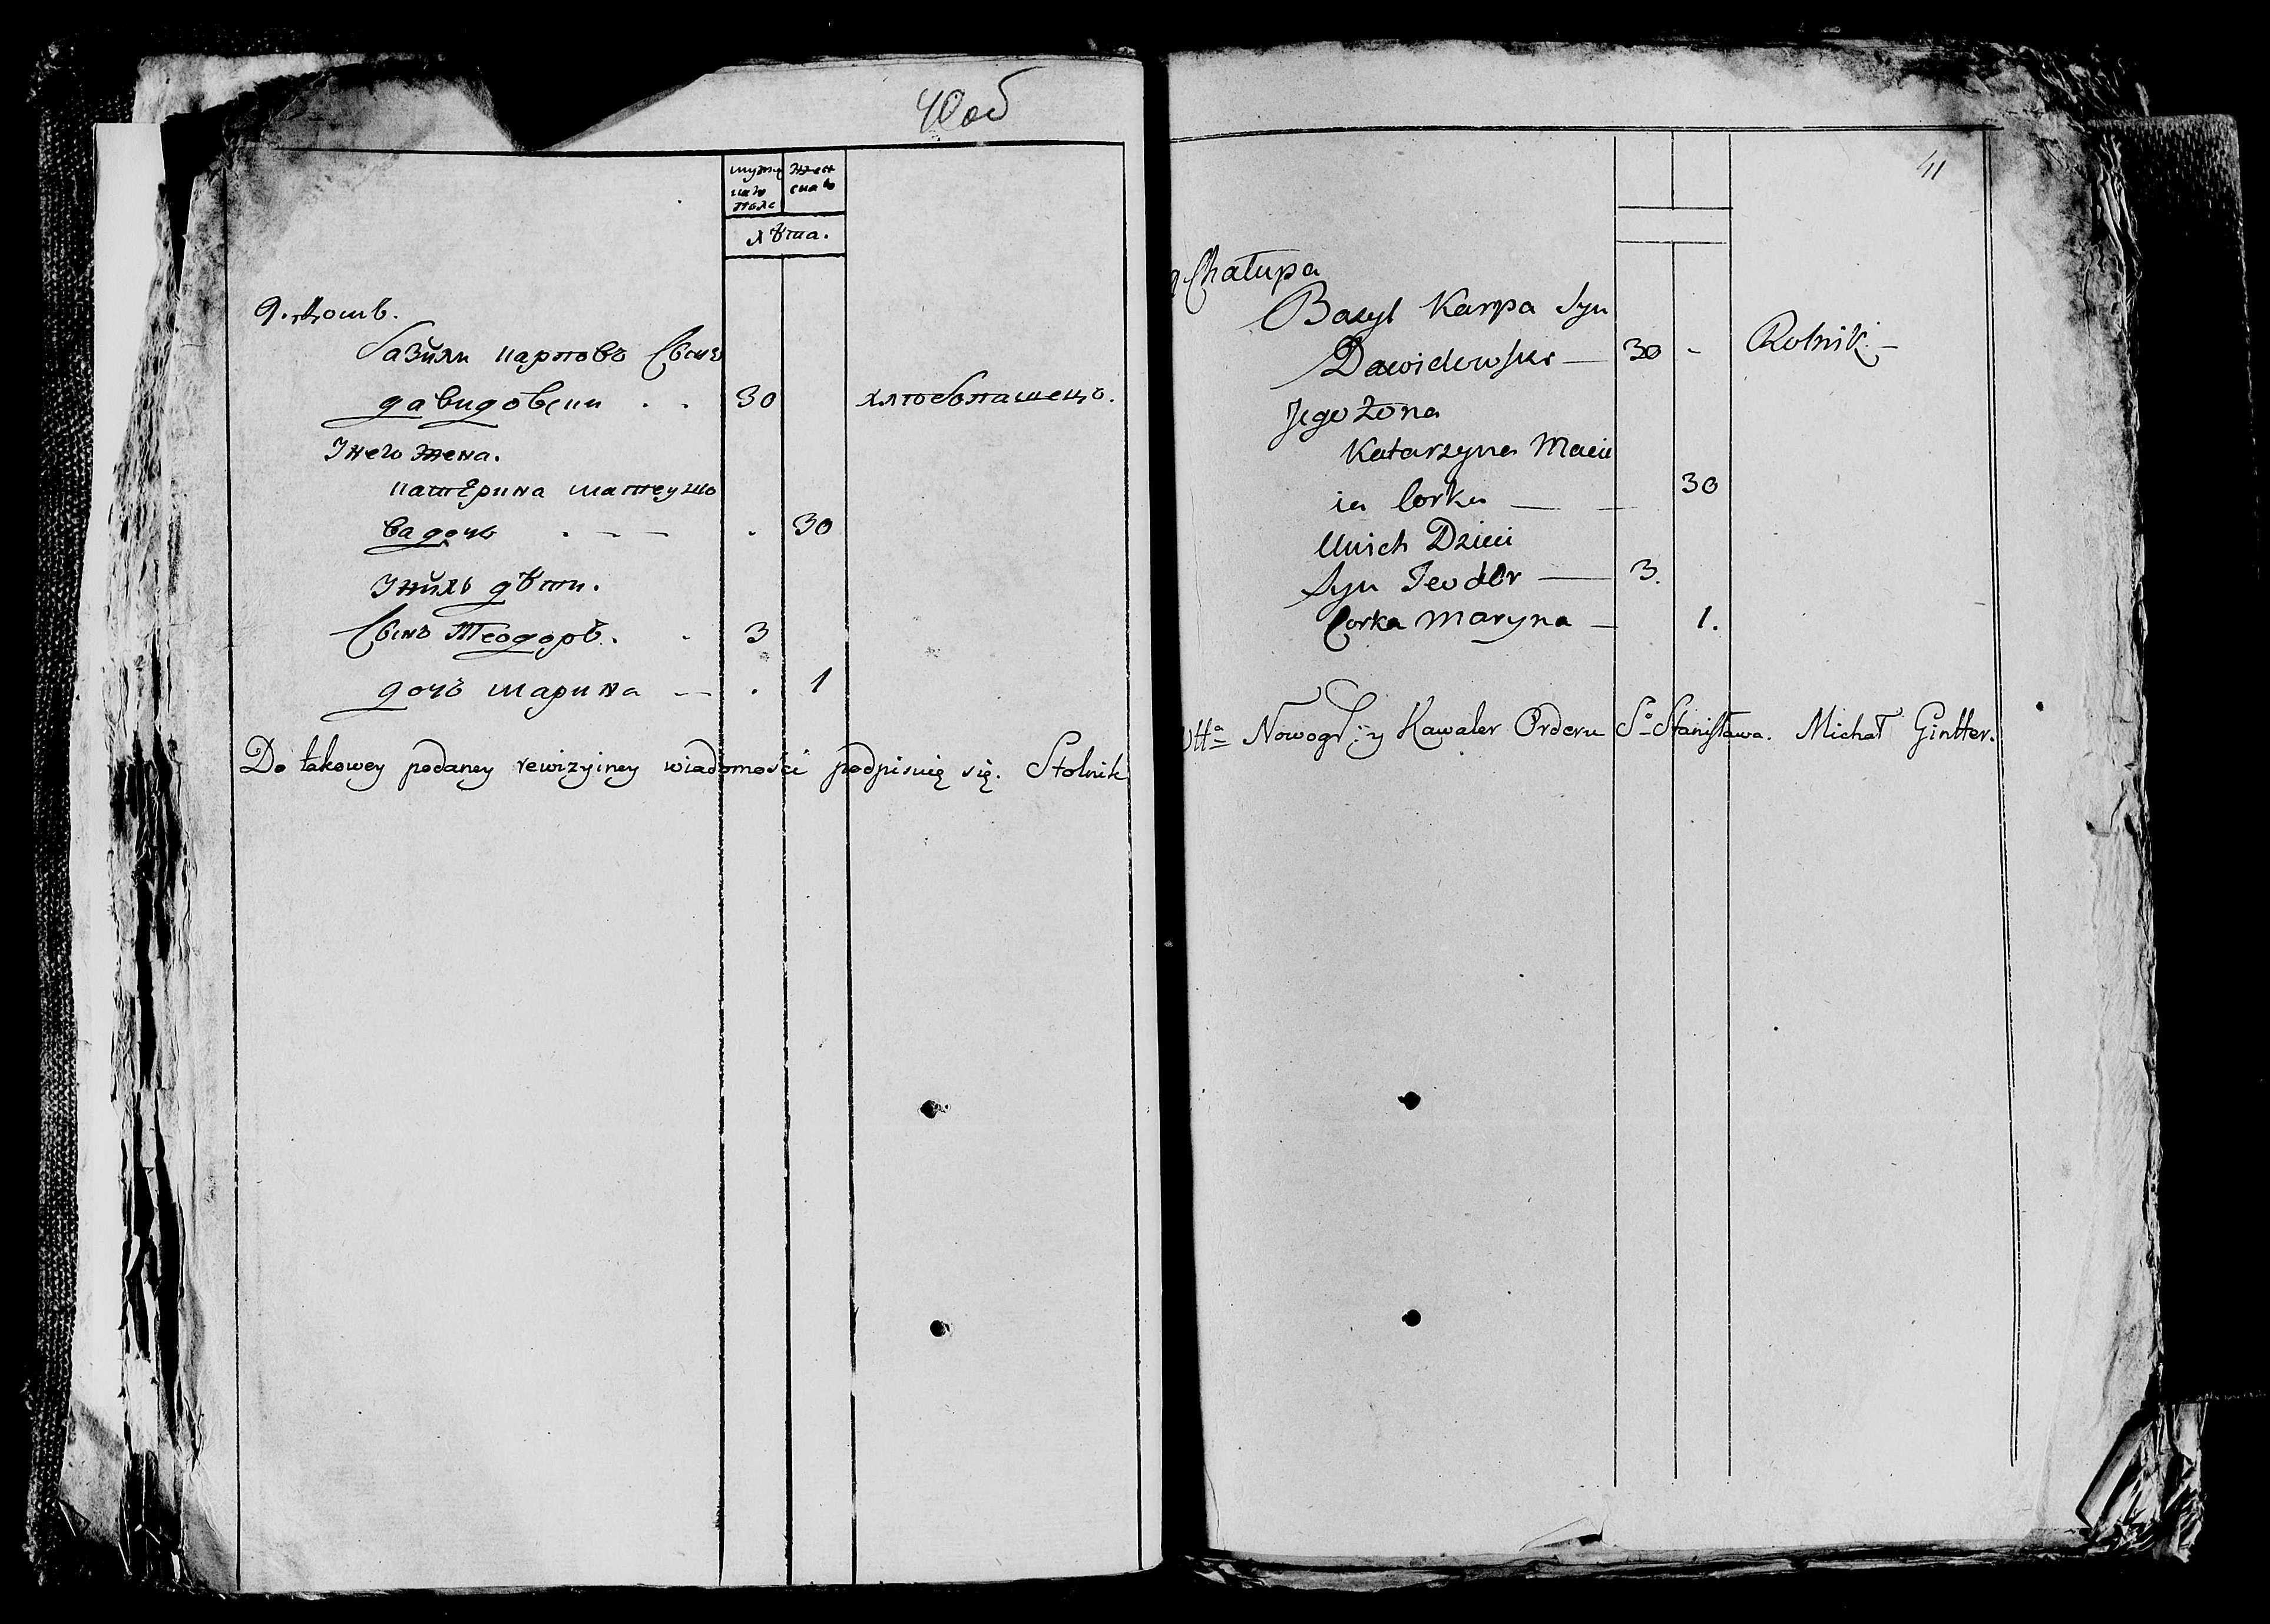 40об
мужеска полѣ
женска
лѣта.
9. Домъ.
базыли карповъ Сынъ
давидовски . . 30 хлѣбопашецъ.
Унего жена.
катерина матеушо
ва дочь . - - - . 30
Унихъ дѣти.
Сынъ Теодоръ. . 3
дочь марина - - . 1
Do takowey podaney rewizyiney wiadomości podpisuię się. Stolnik
41
9 Chałupa
Bazyl Karpa Syn
Dawidowski — 30 - Rolnik. -
Jego żona
Katarzyna Macie
ia Corka — — 30
Unich Dzieci
Syn Teodor — 3.
Corka Maryna — 1.
Wttª Nowogr: y Kawaler Orderu Sº Stanisława. Michał Gintter.